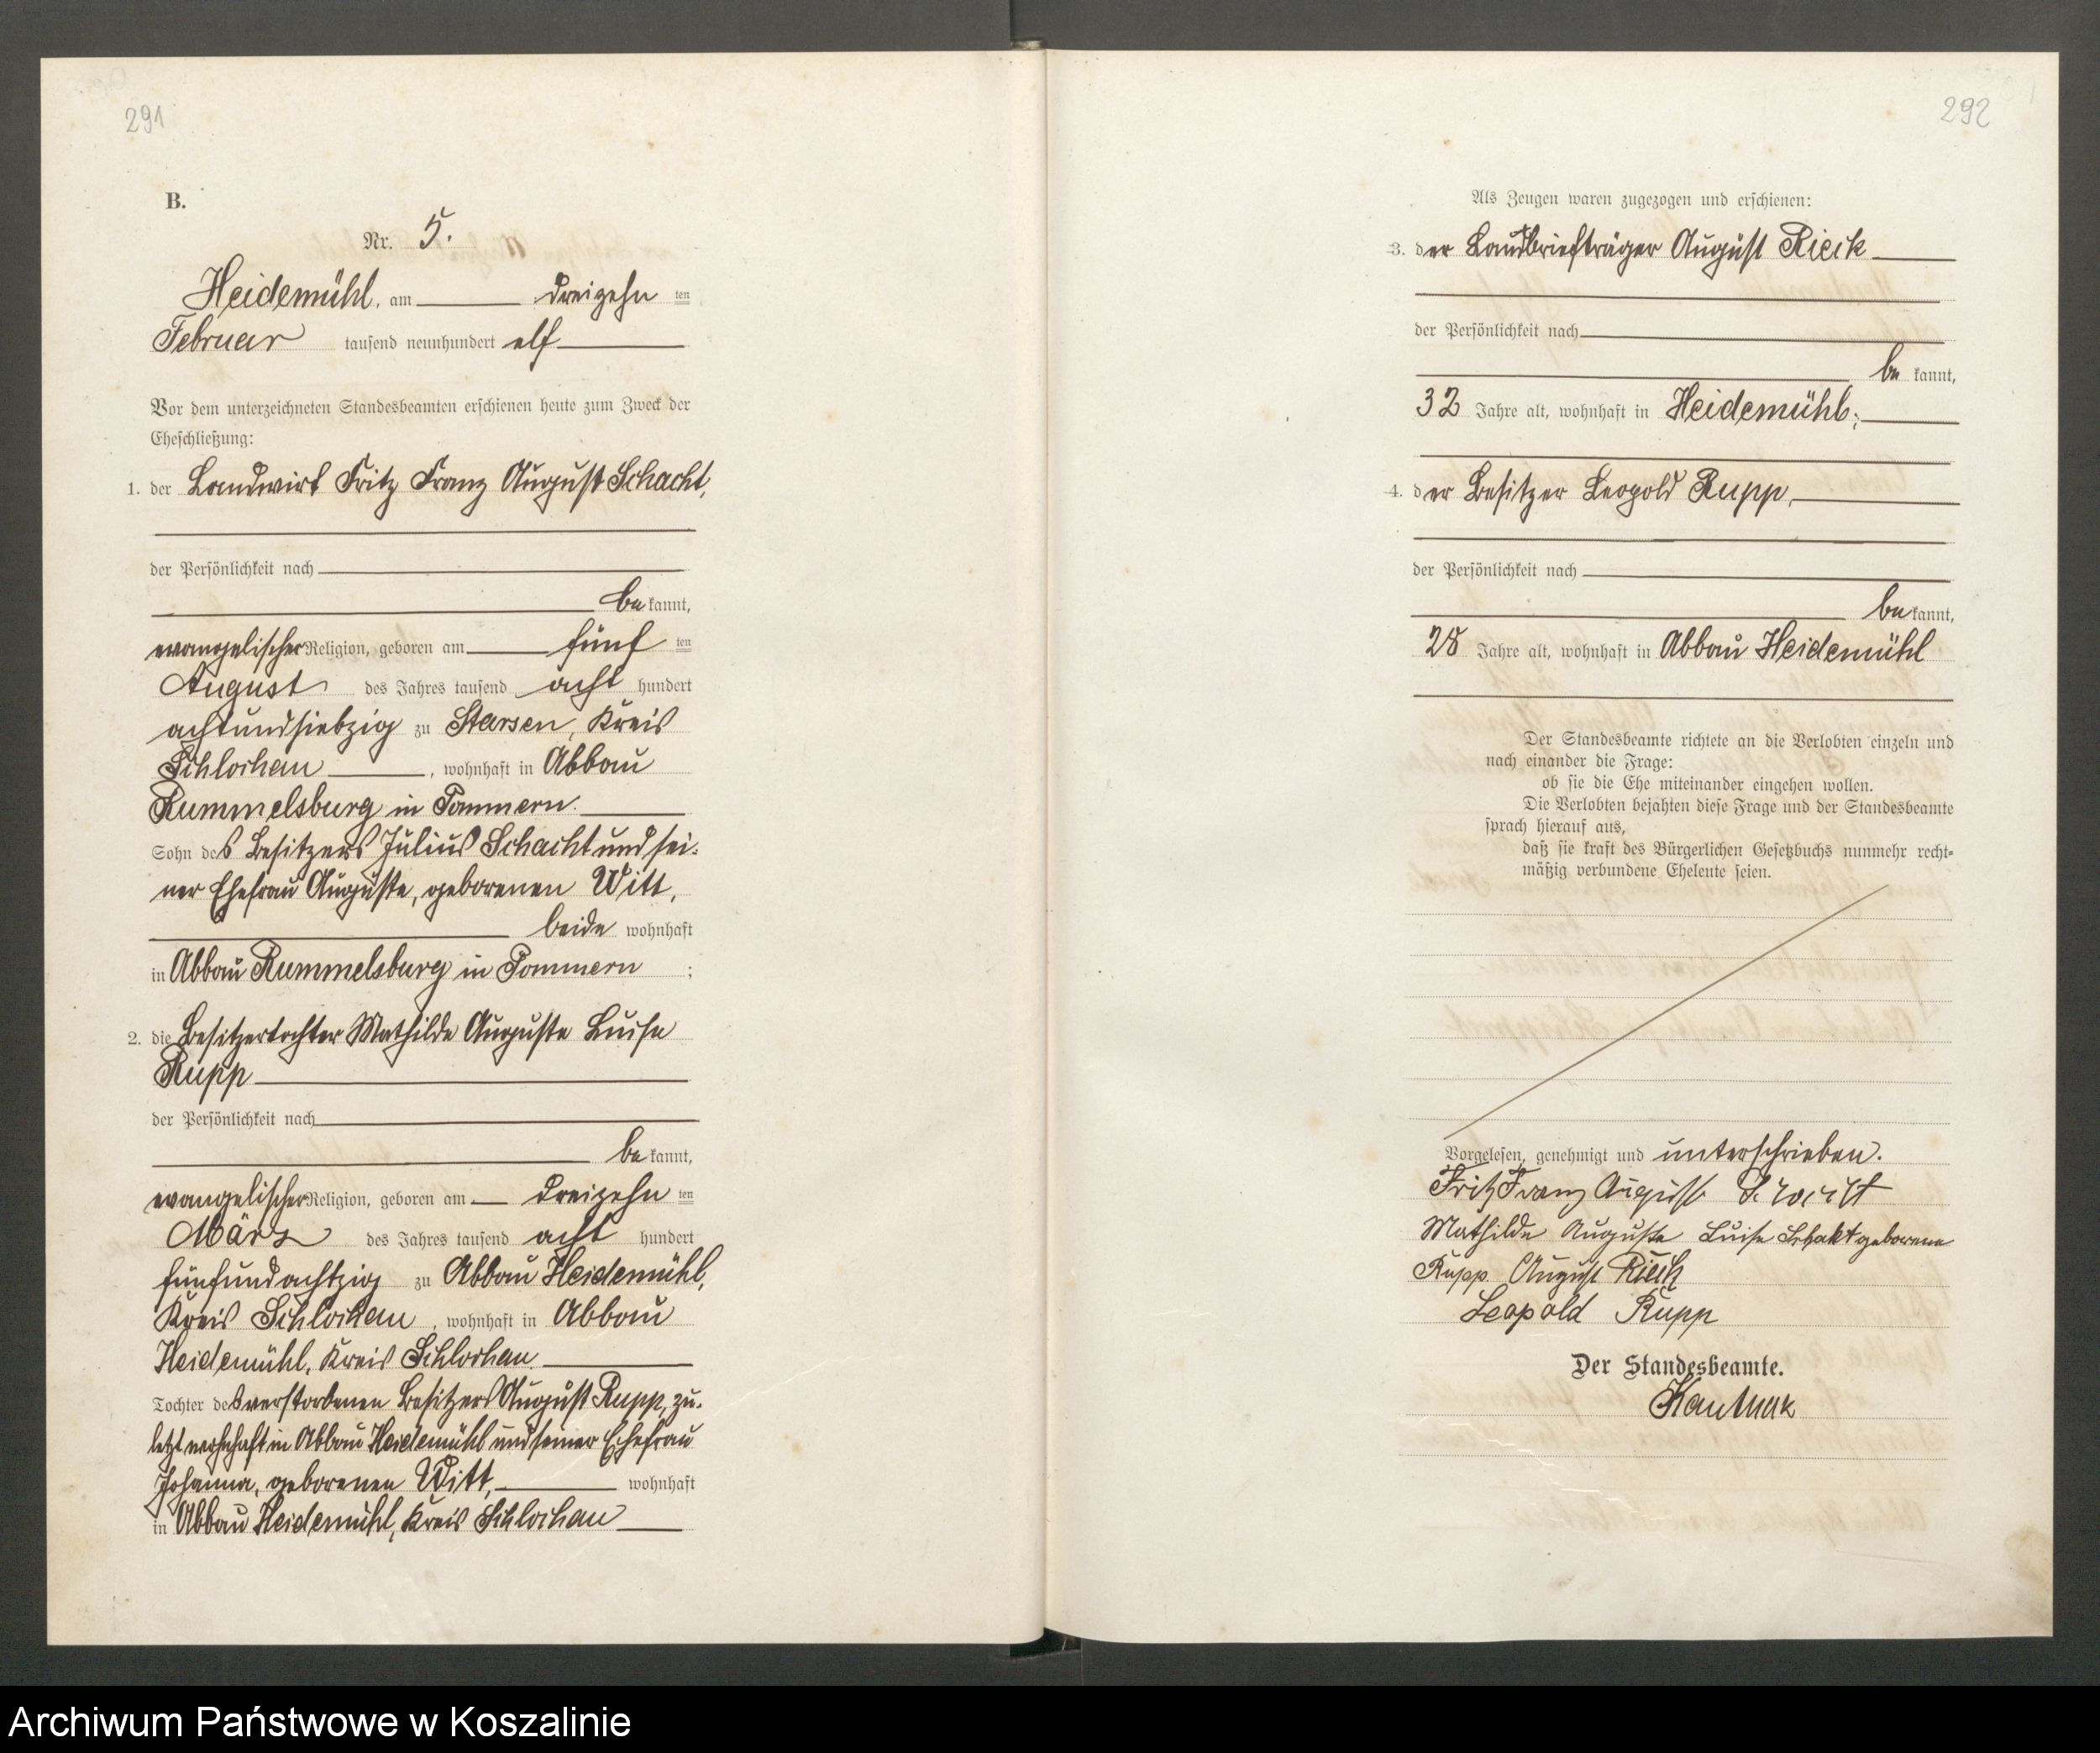 291
B.
Nr. 5.
Heidemühl, am dreizehn ten
Februar tausend neunhundert elf
Vor dem unterzeichneten Standesbeamten erschienen heute zum Zweck der
Eheschließung:
1. der Landwirt Fritz Franz August Schacht,
der Persönlichkeit nach
be kannt,
evangelischer Religion, geboren am fünf ten
August des Jahres tausend acht hundert
achtundsiebzig zu Starsen, Kreis
Schlochau, wohnhaft in Abbau
Rummelsburg in Pommern.
Sohn des Besitzers Julius Schacht und sei-
ner Ehefrau Auguste, geborenen Witt,
beide wohnhaft
in Abbau Rummelsburg in Pommern ;
2. die Besitzertochter Mathilde Auguste Luise
Rupp
der Persönlichkeit nach
be kannt,
evangelischer Religion, geboren am dreizehn ten
März des Jahres tausend acht hundert
fünfundachtzig zu Abbau Heidemühl,
Kreis Schlochau, wohnhaft in Abbau
Heidemühl, Kreis Schlochau.
Tochter des verstorbenen Besitzers August Rupp, zu-
letzt wohnhaft in Abbau Heidemühl und seiner Ehefrau
Johanna, geborenen Witt, wohnhaft
in Abbau Heidemühl, Kreis Schlochau
292
Als Zeugen waren zugezogen und erschienen:
3. der Landbriefträger August Rieck
der Persönlichkeit nach
be kannt,
32 Jahre alt, wohnhaft in Heidemühl;
4. der Besitzer Leopold Rupp,
der Persönlichkeit nach
be kannt,
28 Jahre alt, wohnhaft in Abbau Heidemühl
Der Standesbeamte richtete an die Verlobten einzeln und
nach einander die Frage:
ob sie die Ehe miteinander eingehen wollen.
Die Verlobten bejahten diese Frage und der Standesbeamte
sprach hierauf aus,
daß sie kraft des Bürgerlichen Gesetzbuchs nunmehr recht-
mäßig verbundene Eheleute seien.
Vorgelesen, genehmigt und unterschrieben.
Fritz Franz August Schacht
Mathilde Auguste Luise Schakt geborene
Rupp August Rieck
Leopold Rupp
Der Standesbeamte.
Archiwum Państwowe w Koszalinie